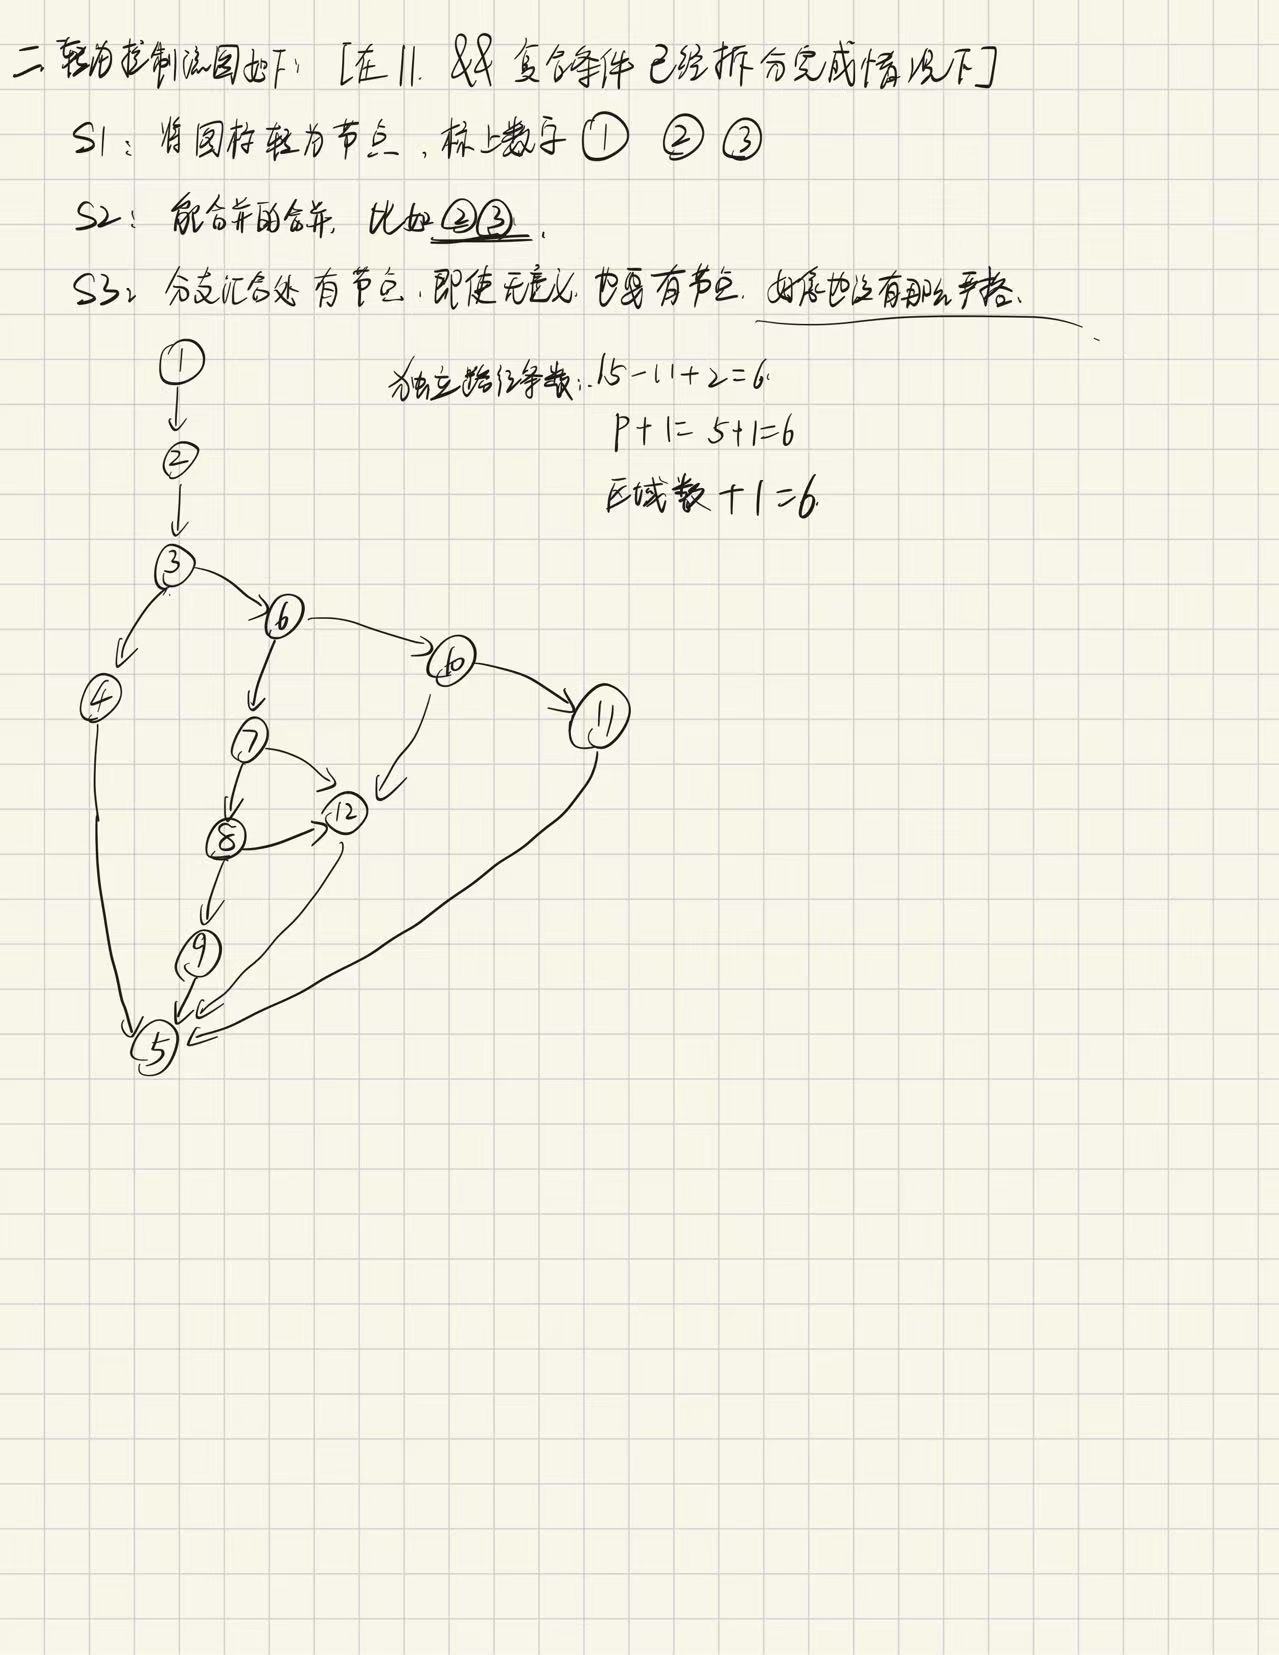 二、转为控制流图如下：[在||. && 复合条件已经拆分完成情况下]
S1：将图标转为节点，标上数字 ① ② ③
S2：能合并的合并，比如②③.
S3：分支汇合处有节点，即使无意义也要有节点. 好像也没有那么严格.
独立路径条数：15-11+2=6.
P+1=5+1=6
区域数+1=6.
①
②
③
⑥
⑩
④
⑪
⑦
⑫
⑧
⑨
⑤